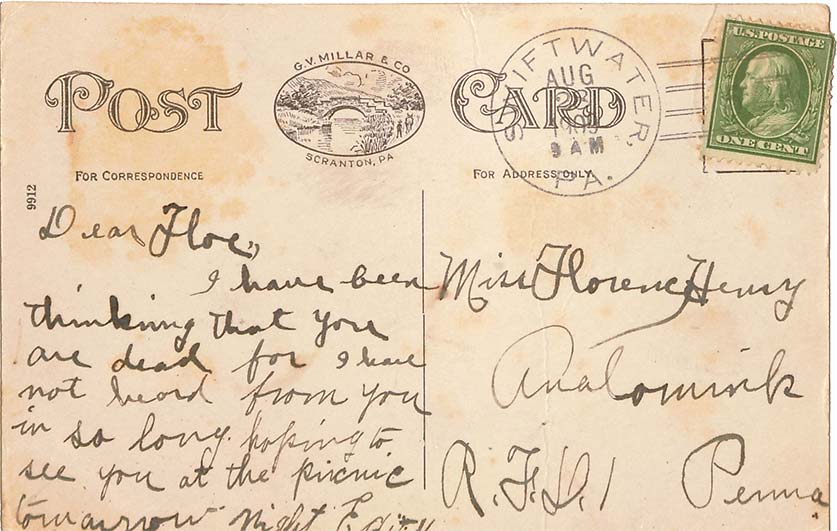 POST CARD
G.V. MILLAR & CO
SCRANTON, PA
FOR CORRESPONDENCE
FOR ADDRESS ONLY
9912
SWIFTWATER,
PA.
AUG
1909
9 AM
U.S. POSTAGE
ONE CENT
Dear Floe,
I have been
thinking that you
are dead for I have
not heard from you
in so long. hoping to
see you at the picnic
tomarrow night Edith
Miss Florence Henry
Analomink
R.F.D. 1 Penna